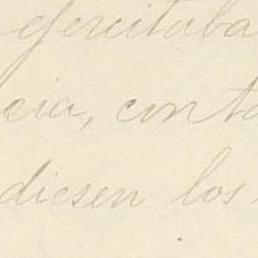 ejercitaba
cia, conta
diesen los